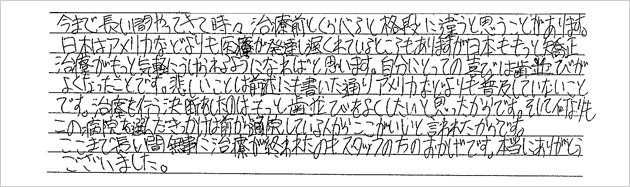 今まで長い間やってきて時々治療前とくらべると格段に違うと思うことがあります。
日本はアメリカなどよりも医療が発達し遅くれているところもありますが日本ももっと矯正
治療がもっと気軽にうけれるようになればと思います。自分にとっての喜びは歯並びが
よくなったことです。悲しいことは前述にも書いた通りアメリカなどよりも普及していないこと
です。治療を行う決断をしたのはもっと歯並びをよくしたいと思ったからです。そしてなにより
この病院を選んだきっかけは前から通院している人がここがいいと言われたからです。
ここまで長い間無事に治療が終われたのもスタッフの方のおかげです。本当にありがとう
ございました。